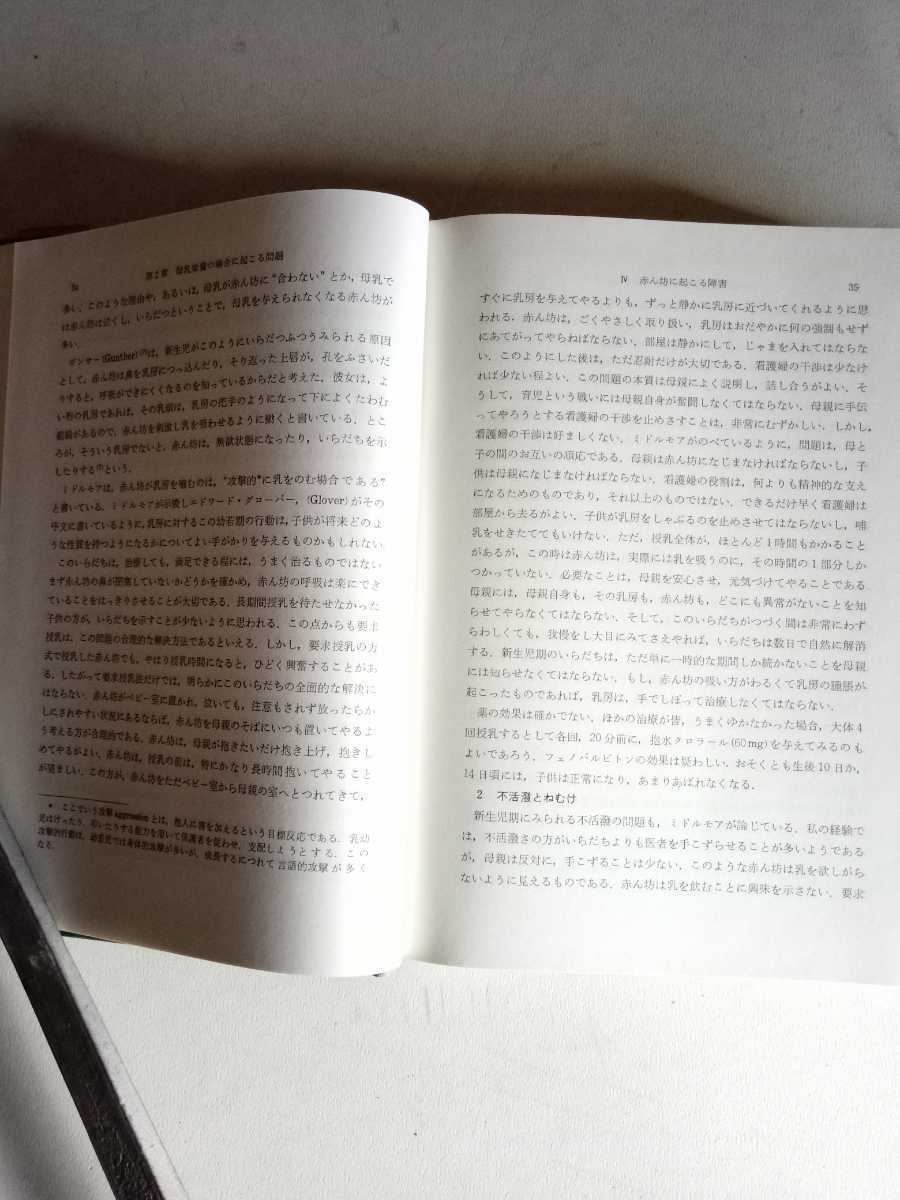 34 第2章 母乳栄養の場合に起こる問題
多い．このような理由や，あるいは，母乳が赤ん坊に“合わない”とか，母乳で
は赤ん坊は泣くし，いらだつということで，母乳を与えられなくなる赤ん坊が
多い．
ガンサー(Gunther)は，新生児がこのようにいらだつふつうみられる原因
として，赤ん坊は鼻を乳房につっ込んだり，そり返った上唇が，孔をふさいだ
りすると，呼吸ができにくくなるのを知っているからだと考えた．彼女は，よ
い形の乳房であれば，その乳頭は，乳房の把手のようになって下によくたわむ
組織があるので，赤ん坊を刺激し乳を吸わせるように働くと書いている．とこ
ろが，そういう乳房でないと，赤ん坊は，無欲状態になったり，いらだちを示
したりするという．
ミドルモアは，赤ん坊が乳房を噛むのは，“攻撃的*に乳をのむ場合である”
と書いている．ミドルモアが示唆しエドワード・グローバー，(Glover)がその
序文に書いているように，乳房に対するこの幼若期の行動は，子供が将来どのよ
うな性質を持つようになるかについてよい手がかりを与えるものかもしれない．
このいらだちは，治療しても，満足できる程には，うまく治るものではない．
まず赤ん坊の鼻が閉塞していないかどうかを確かめ，赤ん坊の呼吸は楽にでき
ていることをはっきりさせることが大切である．長期間授乳を待たせなかった
子供の方が，いらだちを示すことが少ないように思われる．この点からも要求
授乳は，この問題の合理的な解決方法であるといえる．しかし，要求授乳の方
式で授乳した赤ん坊でも，やはり授乳時間になると，ひどく興奮することがあ
る．したがって要求授乳法だけでは，明らかにこのいらだちの全面的な解決に
はならない．赤ん坊がベビー室に置かれ，泣いても，注意もされず放ったらか
しにされやすい状況にあるならば，赤ん坊を母親のそばにいつも置いてやるよ
う考える方が合理的である．赤ん坊は，母親が抱きたいだけ抱き上げ，抱きし
めてやるがよい．赤ん坊は，授乳の前は，特にかなり長時間抱いてやること
が望ましい．この方が，赤ん坊をただベビー室から母親の室へとつれてきて，
* ここでいう攻撃aggressionとは，他人に害を加えるという目標反応である．乳幼
児はけったり，叩いたりする能力を用いて保護者を従わせ，支配しようとする．この
攻撃的行動は，幼若児では身体的攻撃が多いが，成長するにつれて言語的攻撃が多く
なる．
Ⅳ 赤ん坊に起こる障害 35
すぐに乳房を与えてやるよりも，ずっと静かに乳房に近づいてくれるように思
われる．赤ん坊は，ごくやさしく取り扱い，乳房はおだやかに何の強制もせず
にあてがってやらねばならない．部屋は静かにして，じゃまを入れてはならな
い．このようにした後は，ただ忍耐だけが大切である．看護婦の干渉は少なけ
れば少ない程よい．この問題の本質は母親によく説明し，話し合うがよい．そ
うして，育児という戦いには母親自身が奮闘しなくてはならない．母親に手伝
ってやろうとする看護婦の干渉を止めさすことは，非常にむずかしい．しかし，
看護婦の干渉は好ましくない．ミドルモアがのべているように，問題は，母と
子の間のお互いの順応である．母親は赤ん坊になじまなければならないし，子
供は母親になじまなければならない．看護婦の役割は，何よりも精神的な支え
になるためのものであり，それ以上のものではない．できるだけ早く看護婦は
部屋から去るがよい．子供が乳房をしゃぶるのを止めさせてはならないし，哺
乳をせきたててもいけない．ただ，授乳全体が，ほとんど1時間もかかること
があるが，この時は赤ん坊は，実際には乳を吸うのに，その時間の1部分しか
つかっていない．必要なことは，母親を安心させ，元気づけてやることである．
母親には，母親自身も，その乳房も，赤ん坊も，どこにも異常がないことを知
らせてやらなくてはならない．そして，このいらだちがつづく間は非常にわず
らわしくても，我慢をし大目にみてさえやれば，いらだちは数日で自然に解消
する．新生児期のいらだちは，ただ単に一時的な期間しか続かないことを母親
には知らせなくてはならない．もし，赤ん坊の吸い方がわるくて乳房の腫脹が
起こったものであれば，乳房は，手でしぼって治療しなくてはならない．
薬の効果は確かでない．ほかの治療が皆，うまくゆかなかった場合，大体4
回授乳するとして各回，20分前に，抱水クロラール(60mg)を与えてみるのも
よいであろう．フェノバルビトンの効果は疑わしい．おそくとも生後10日か，
14日頃には，子供は正常になり，あまりあばれなくなる．
2 不活潑とねむけ
新生児期にみられる不活潑の問題も，ミドルモアが論じている．私の経験で
は，不活潑さの方がいらだちよりも医者を手こずらせることが多いようである
が，母親は反対に，手こずることは少ない．このような赤ん坊は乳を欲しがら
ないように見えるものである．赤ん坊は乳を飲むことに興味を示さない．要求